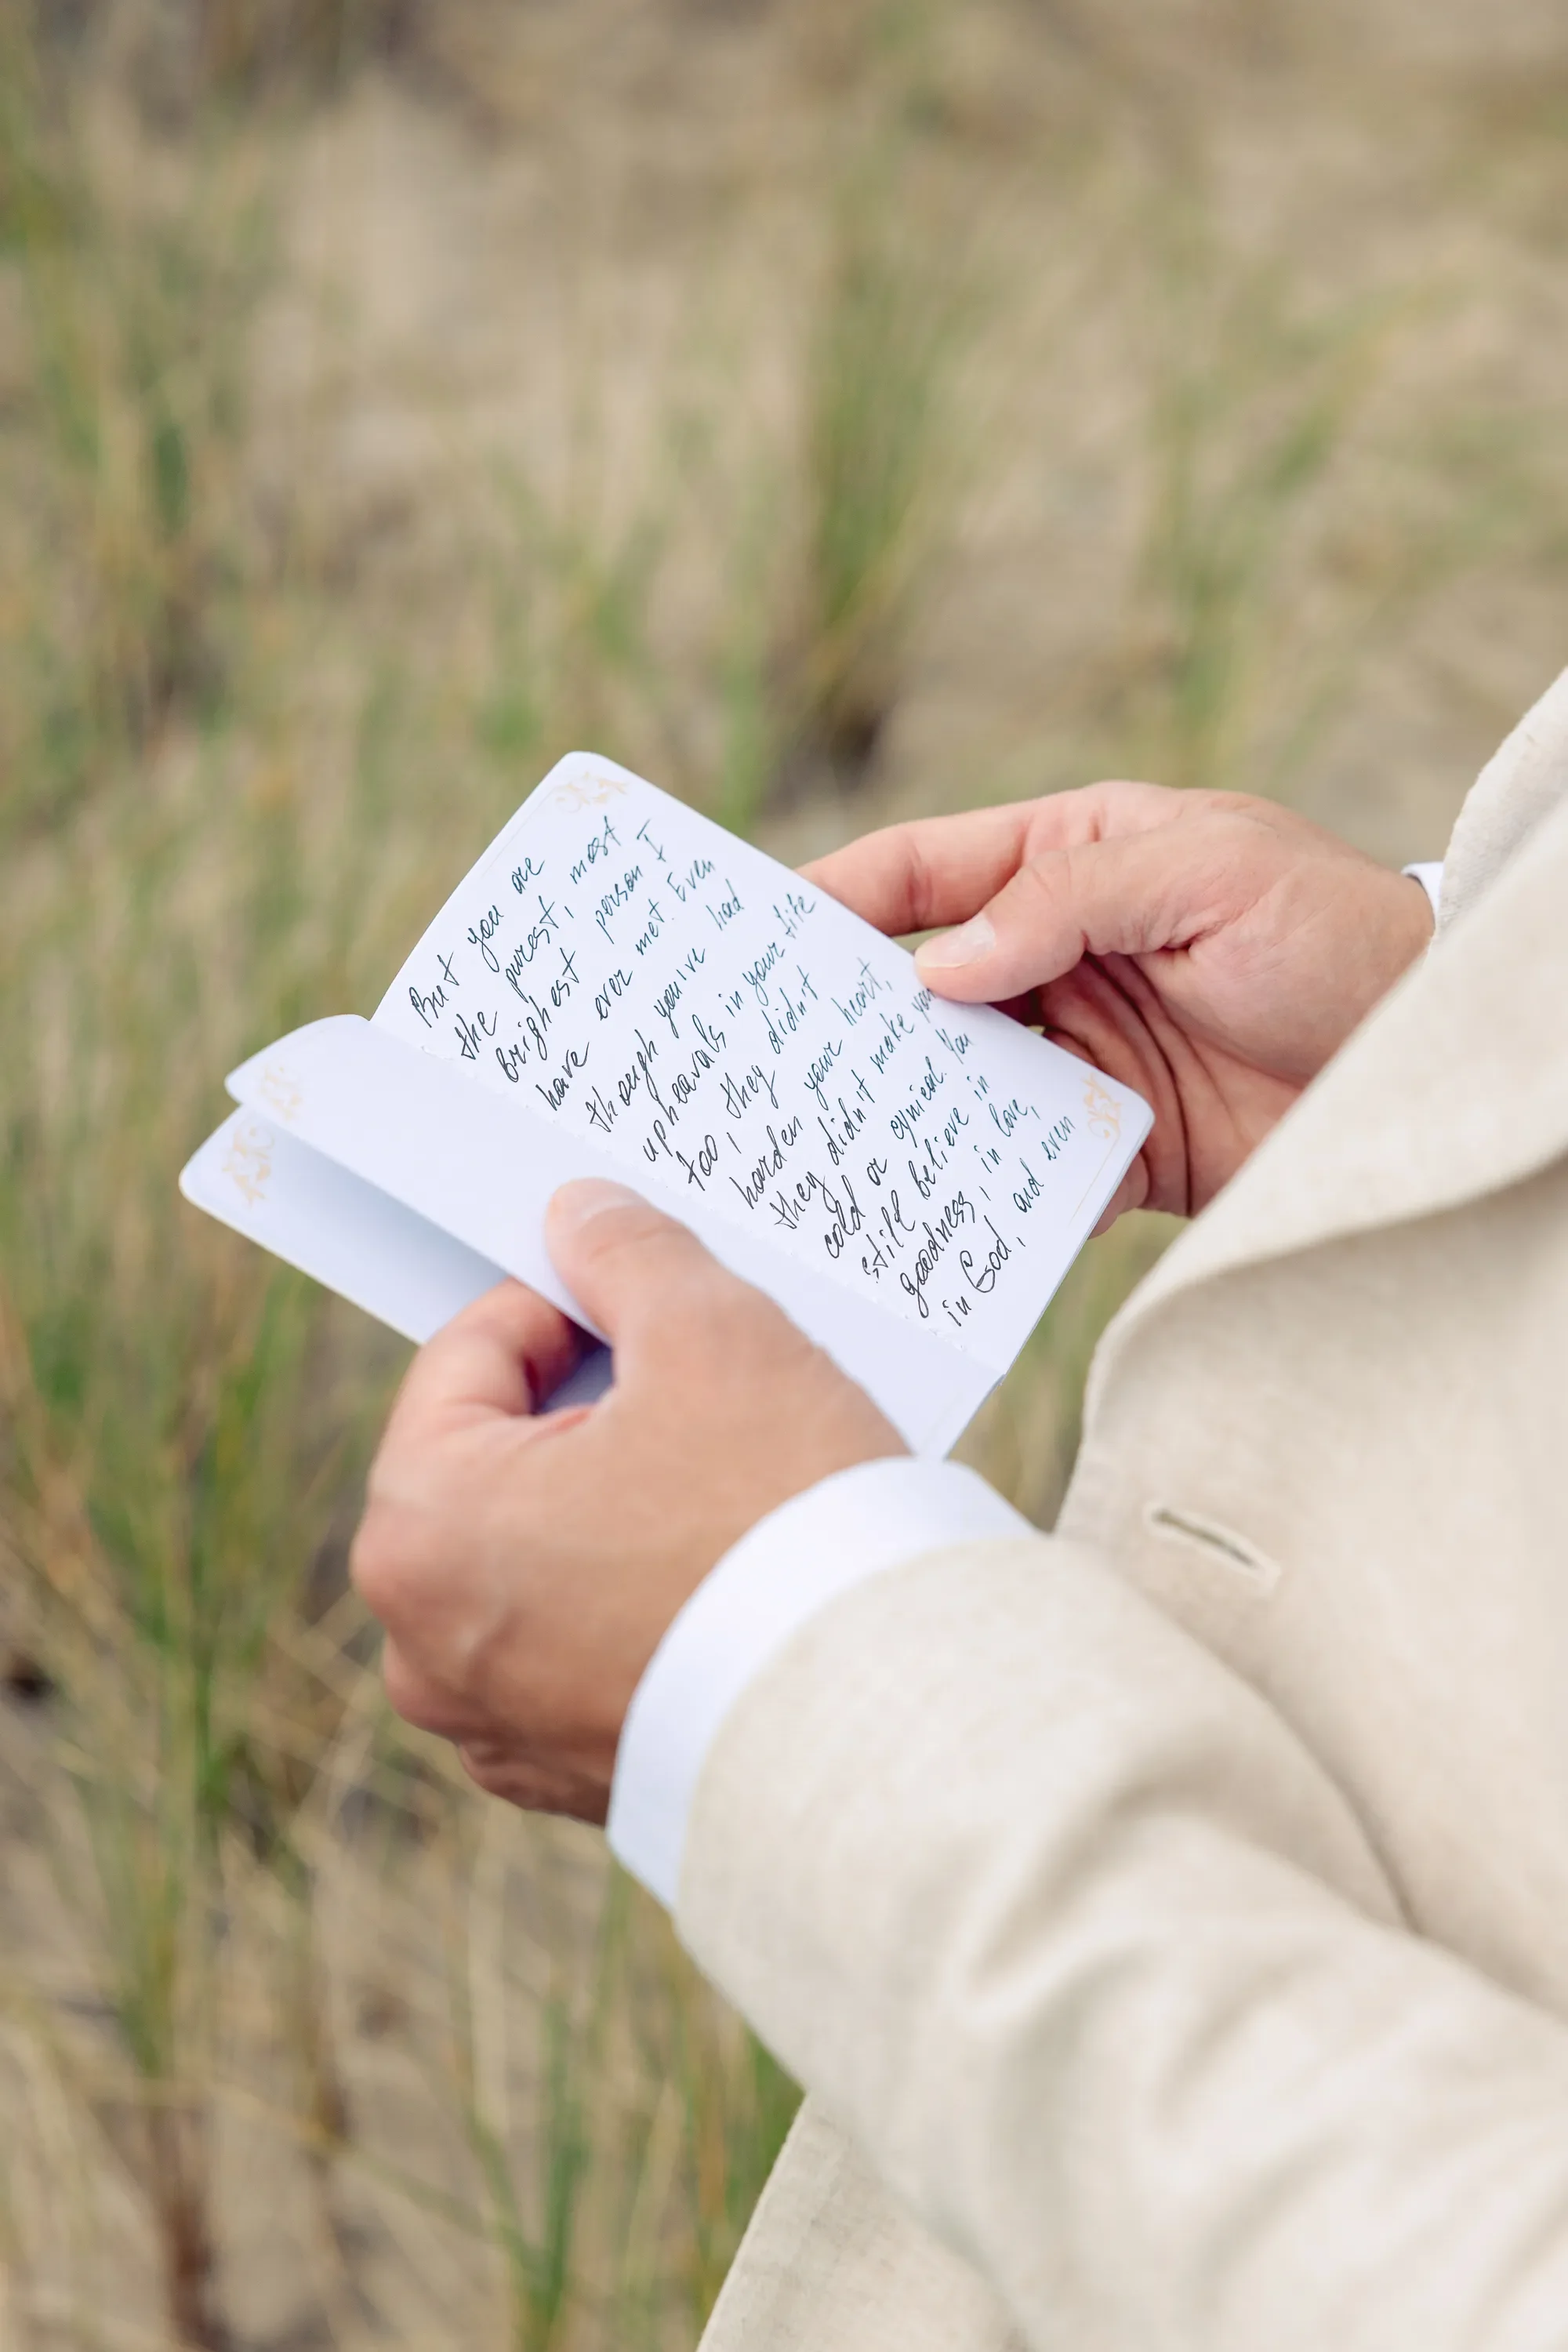 But you are
the purest, most
brightest person I
have ever met. Even
though you've had
upheavals in your life
too, they didn't
harden your heart,
they didn't make you
cold or cynical. You
still believe in
goodness, in love,
in God, and even